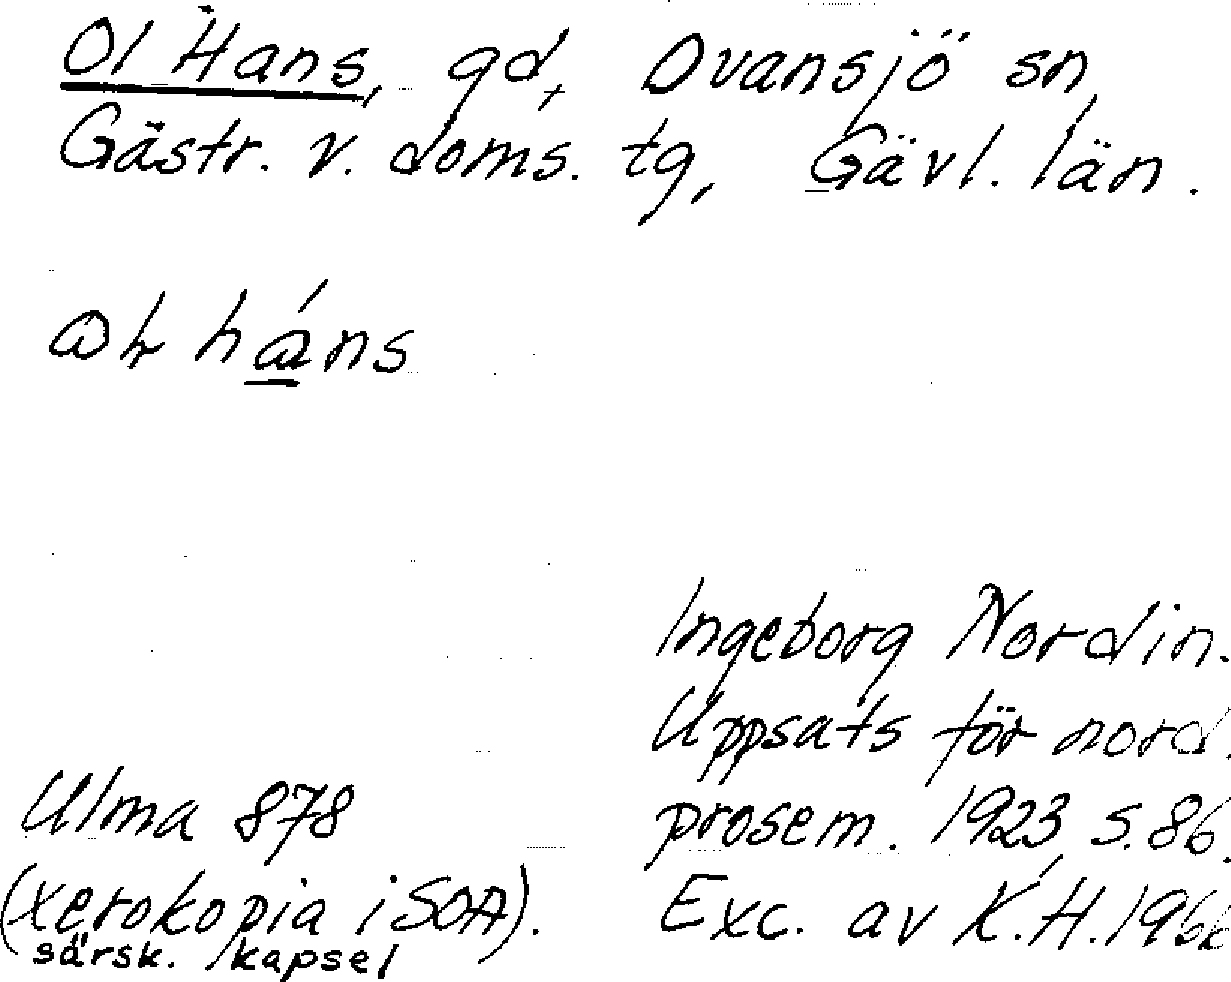 Ol Hans, gd, Ovansjö sn,
Gästr. v. doms. tg, Gävl. län.
háns
Ingeborg Nordin.
Uppsats för nord.
prosem. 1923, s. 86.
Exc. av K.H. 196
Ulma 878
(xerokopia i SOA).
särsk. kapsel